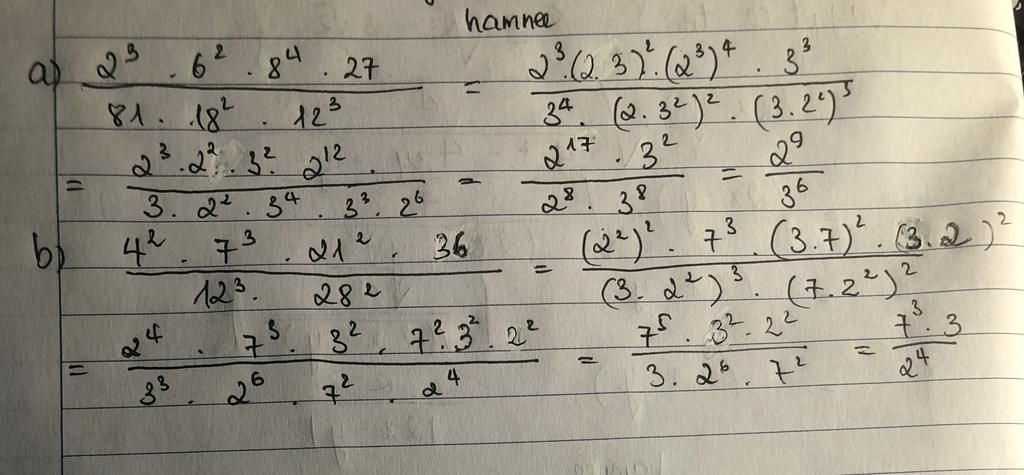 hamnee
a) (2³ · 6² · 8⁴ · 27)/(81 · 18² · 12³) = (2³·(2.3)²·(2³)⁴ · 3³)/(3⁴ · (2.3²)² · (3.2²)³)
= (2³ · 2² · 3² · 2¹² ·)/(3 · 2² · 3⁴ · 3³ · 2⁶) = (2¹⁷ · 3²)/(2⁸ · 3⁸) = 2⁹/3⁶
b) (4² · 7³ · 21² · 36)/(12³ · 28²) = ((2²)² · 7³ · (3.7)² · (3.2)²)/((3.2²)³ · (7.2²)²)
= (2⁴ · 7³ · 3² · 7² · 3² · 2²)/(3³ · 2⁶ · 7² · 2⁴) = (7⁵ · 3² · 2²)/(3 · 2⁶ · 7²) = (7³ · 3)/2⁴